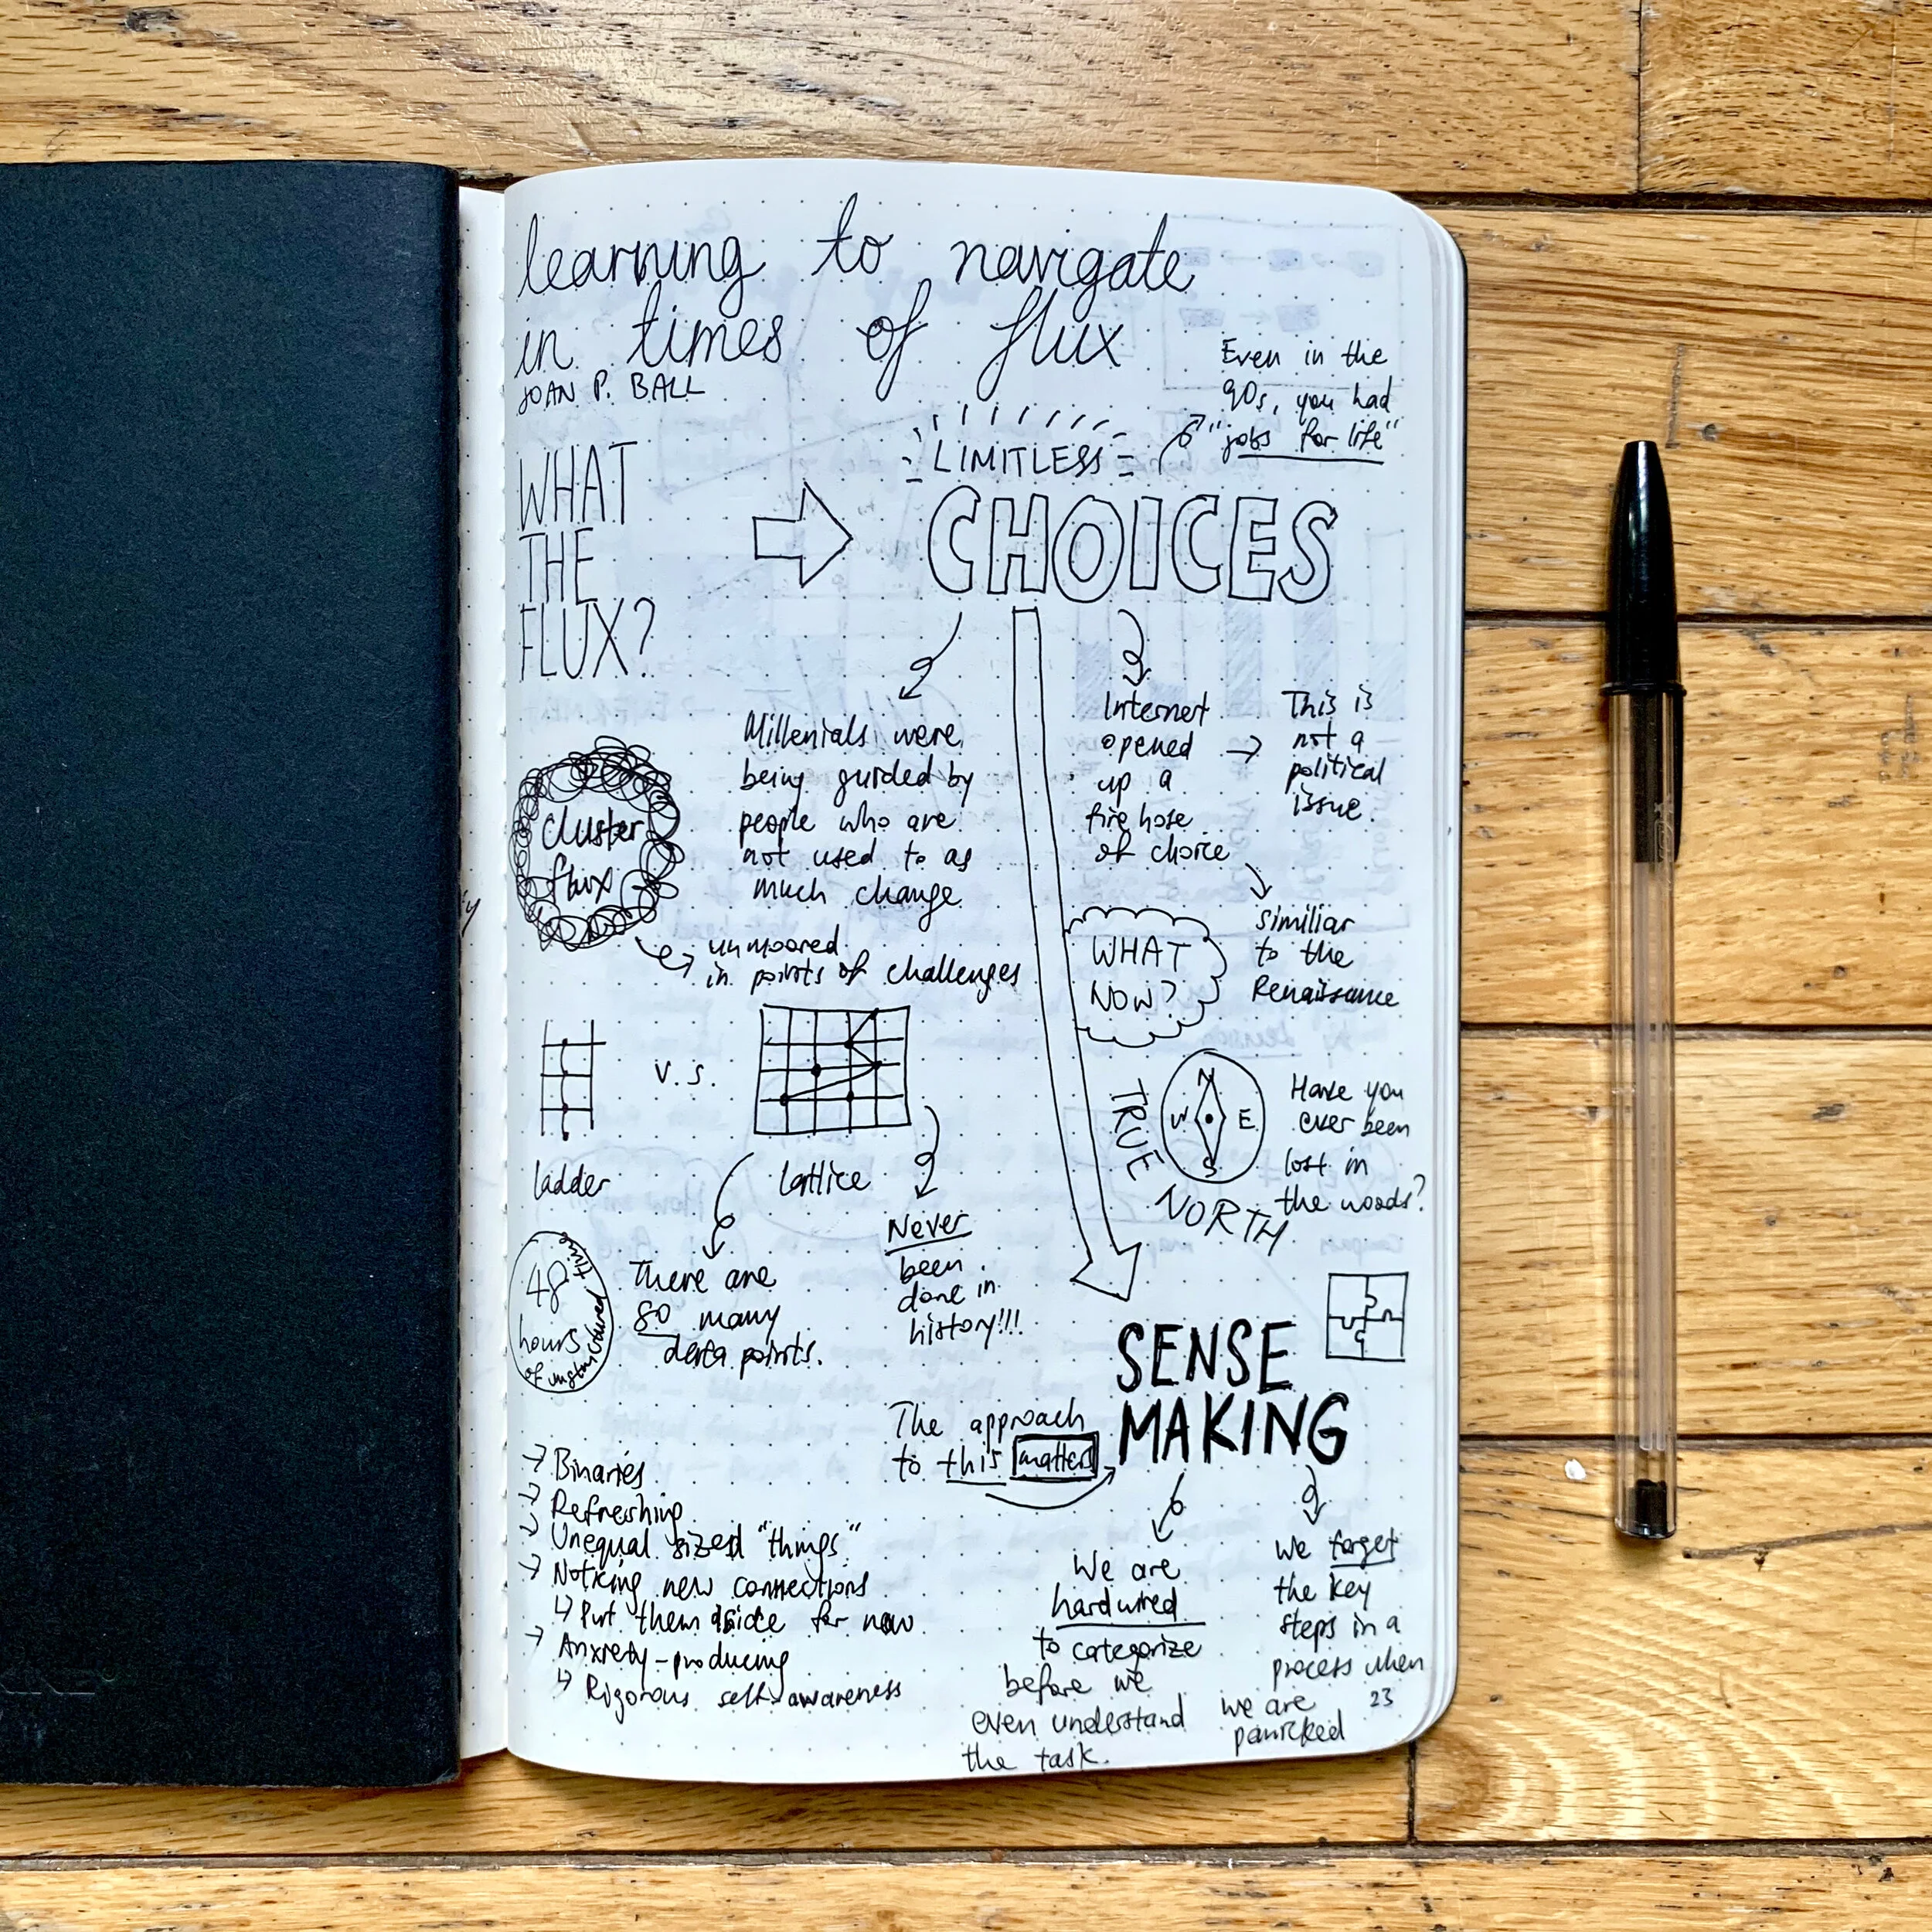 learning to navigate
in times of flux
JOAN P. BALL
Even in the
90s, you had
"jobs for life"
WHAT
THE
FLUX?
LIMITLESS
CHOICES
Millenials were
being guided by
people who are
not used to as
much change
Internet
opened
up a
fire hose
of choice
This is
not a
political
issue.
similiar
to the
Renaissance
cluster
flux
unmoored
in points of challenges
WHAT
NOW?
v.s.
ladder
lattice
N
W E
S
TRUE
NORTH
Have you
ever been
lost in
the woods?
48
hours
of unstructured time
There are
so many
data points.
Never
been
done in
history!!!
SENSE
MAKING
The approach
to this matters
→ Binaries
→ Refreshing
→ Unequal sized "things"
→ Noticing new connections
↳ Put them aside for now
→ Anxiety-producing
↳ Rigorous self-awareness
We are
hardwired
to categorize
before we
even understand
the task.
we forget
the key
steps in a
process when
we are
panicked
23